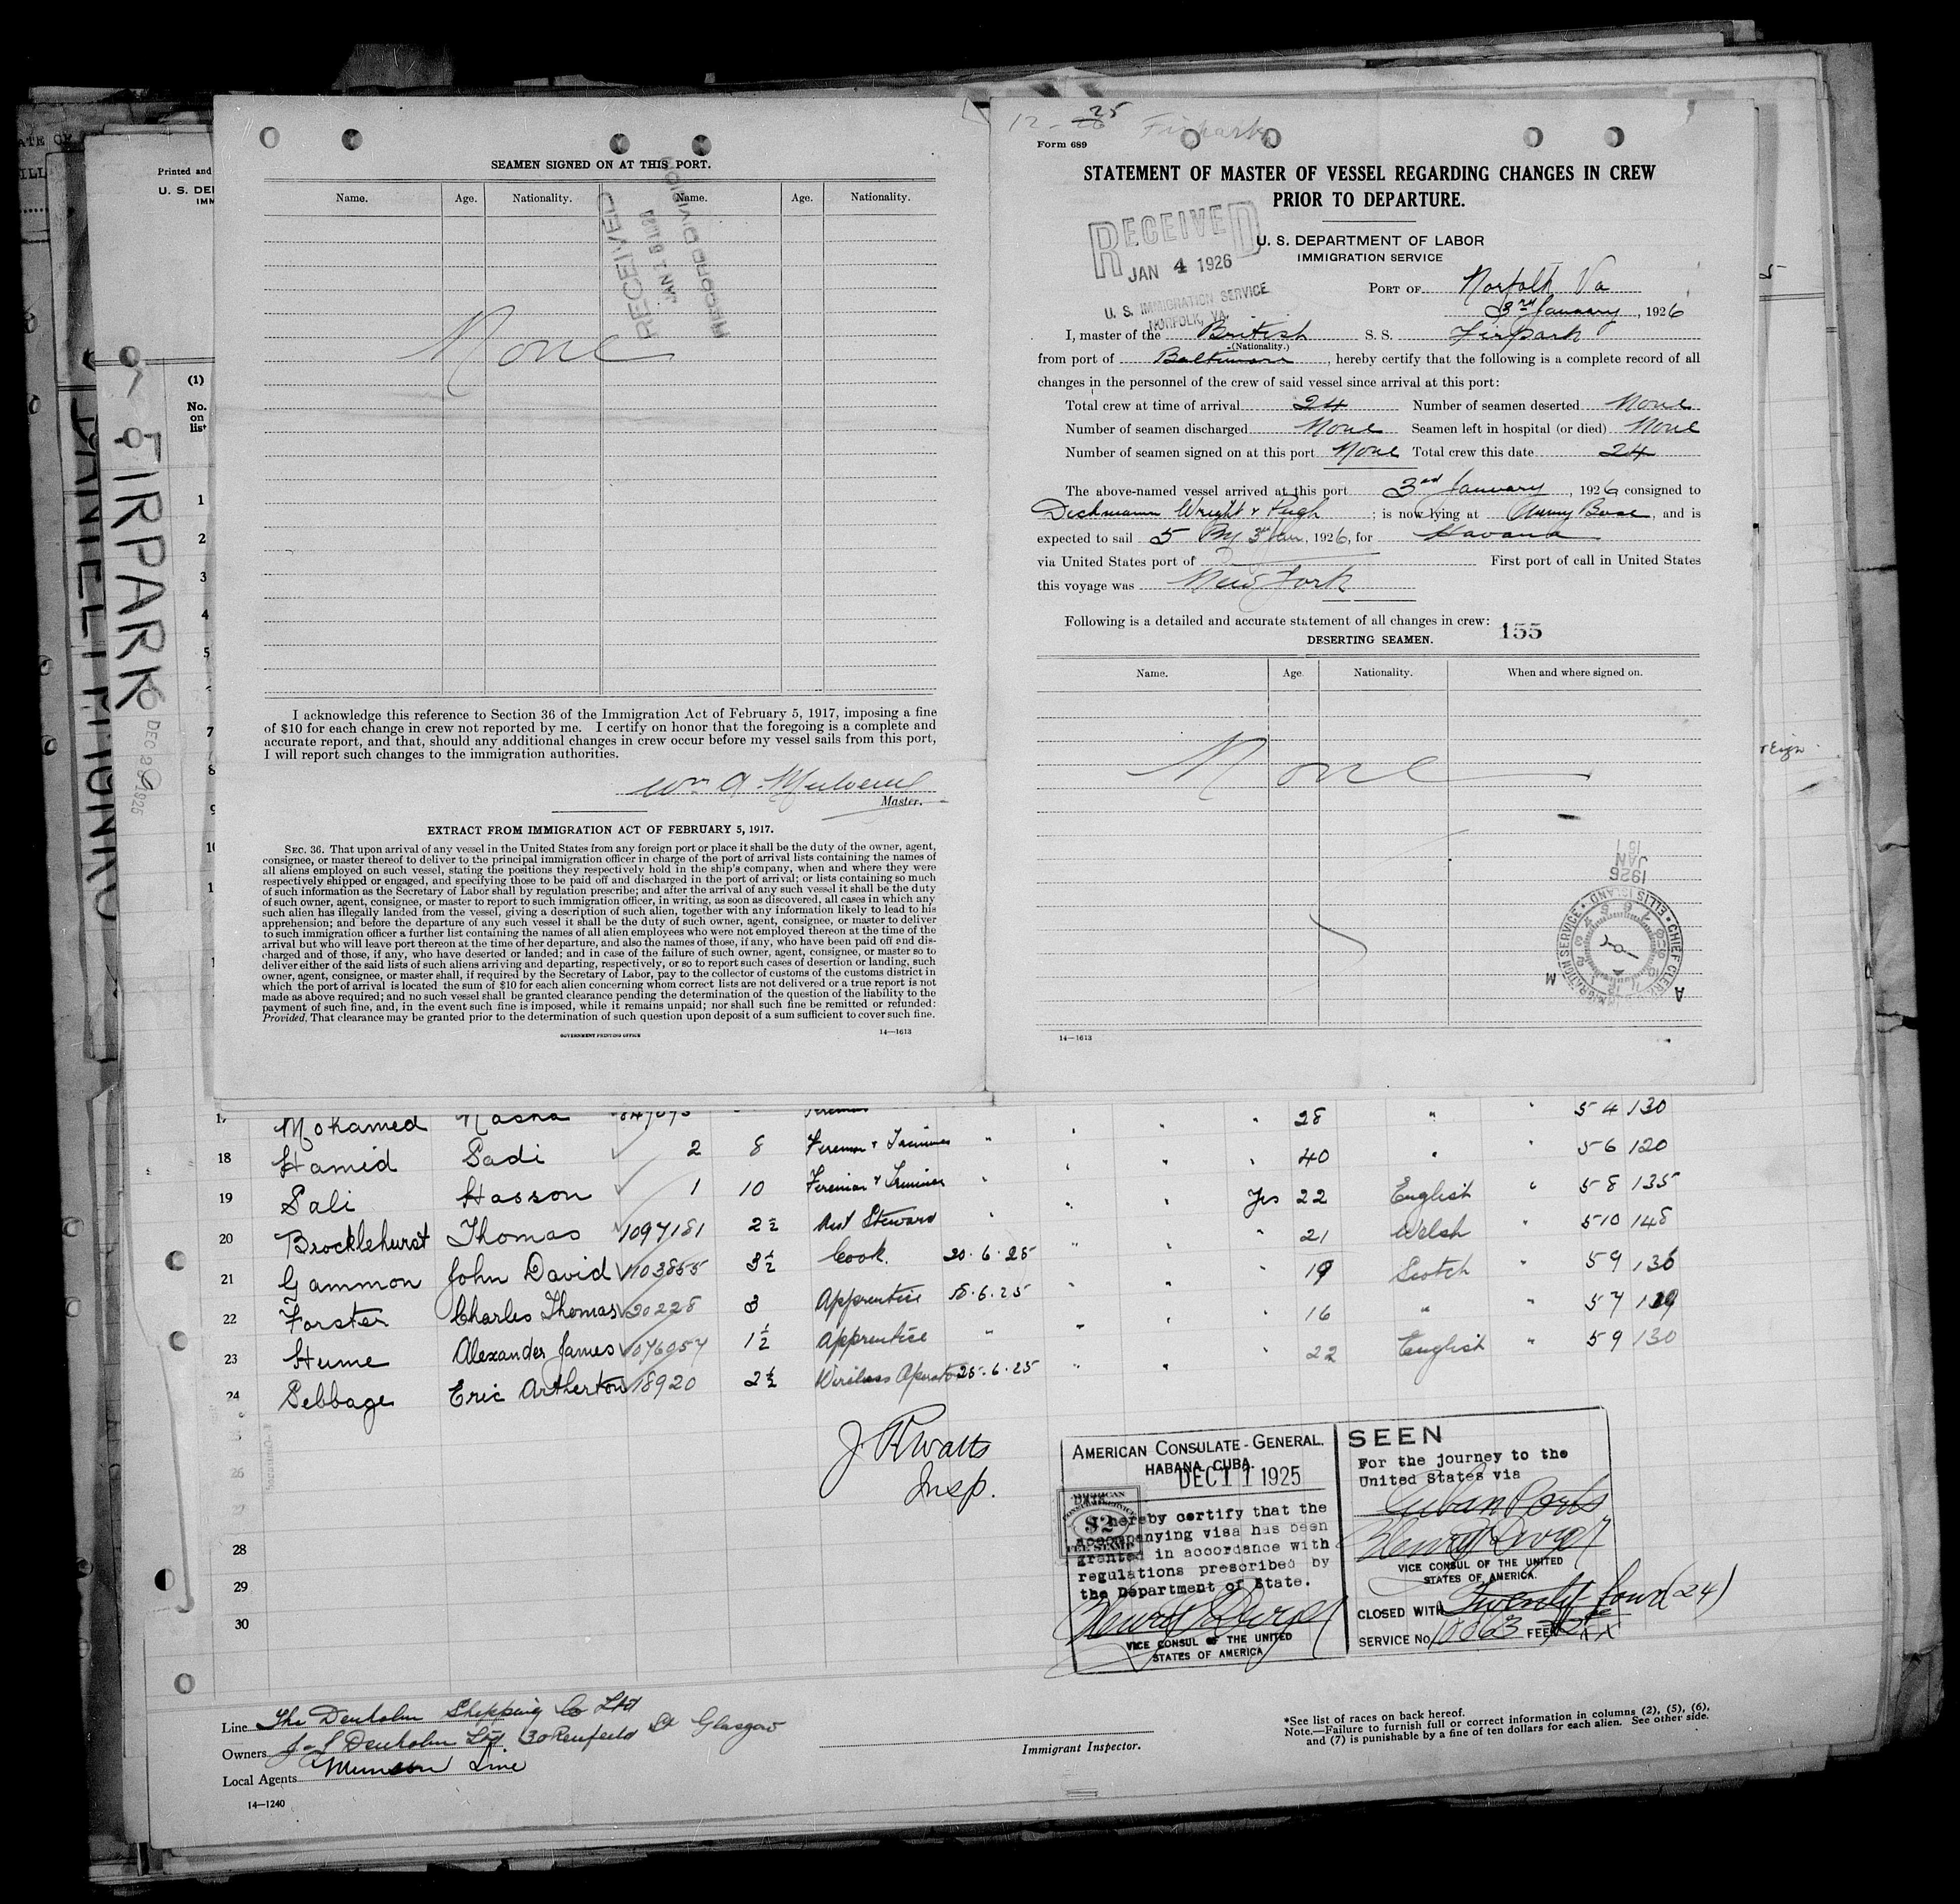 SEAMEN SIGNED ON AT THIS PORT.
Name. Age. Nationality. Name. Age. Nationality.
RECEIVED
RECORD DIVISION
None
I acknowledge this reference to Section 36 of the Immigration Act of February 5, 1917, imposing a fine
of $10 for each change in crew not reported by me. I certify on honor that the foregoing is a complete and
accurate report, and that, should any additional changes in crew occur before my vessel sails from this port,
I will report such changes to the immigration authorities.
Wm A.
Master.
EXTRACT FROM IMMIGRATION ACT OF FEBRUARY 5, 1917.
SEC. 36. That upon arrival of any vessel in the United States from any foreign port or place it shall be the duty of the owner, agent,
consignee, or master thereof to deliver to the principal immigration officer in charge of the port of arrival lists containing the names of
all aliens employed on such vessel, stating the positions they respectively hold in the ship's company, when and where they were
respectively shipped or engaged, and specifying those to be paid off and discharged in the port of arrival; or lists containing so much
of such information as the Secretary of Labor shall by regulation prescribe; and after the arrival of any such vessel it shall be the duty
of such owner, agent, consignee, or master to report to such immigration officer, in writing, as soon as discovered, all cases in which any
such alien has illegally landed from the vessel, giving a description of such alien, together with any information likely to lead to his
apprehension; and before the departure of any such vessel it shall be the duty of such owner, agent, consignee, or master to deliver
to such immigration officer a further list containing the names of all alien employees who were not employed thereon at the time of the
arrival but who will leave port thereon at the time of her departure, and also the names of those, if any, who have been paid off and dis-
charged and of those, if any, who have deserted or landed; and in case of the failure of such owner, agent, consignee, or master so to
deliver either of the said lists of such aliens arriving and departing, respectively, or so to report such cases of desertion or landing, such
owner, agent, consignee, or master shall, if required by the Secretary of Labor, pay to the collector of customs of the customs district in
which the port of arrival is located the sum of $10 for each alien concerning whom correct lists are not delivered or a true report is not
made as above required; and no such vessel shall be granted clearance pending the determination of the question of the liability to the
payment of such fine, and, in the event such fine is imposed, while it remains unpaid; nor shall such fine be remitted or refunded:
Provided, That clearance may be granted prior to the determination of such question upon deposit of a sum sufficient to cover such fine.
GOVERNMENT PRINTING OFFICE 14—1613
12 - 25 Firpark
Form 689
STATEMENT OF MASTER OF VESSEL REGARDING CHANGES IN CREW
PRIOR TO DEPARTURE.
RECEIVED
JAN 4 1926
U. S. IMMIGRATION SERVICE
NORFOLK, VA.
U. S. DEPARTMENT OF LABOR
IMMIGRATION SERVICE
PORT OF Norfolk Va
3rd January, 1926
I, master of the British S. S. Firpark
(Nationality.)
from port of Baltimore, hereby certify that the following is a complete record of all
changes in the personnel of the crew of said vessel since arrival at this port:
Total crew at time of arrival 24 Number of seamen deserted None
Number of seamen discharged None Seamen left in hospital (or died) None
Number of seamen signed on at this port None Total crew this date 24
The above-named vessel arrived at this port 3rd January, 1926 consigned to
Dichmann Wright & Pugh; is now lying at Army Base, and is
expected to sail 5 3rd Jan, 1926, for Havana
via United States port of First port of call in United States
this voyage was New York
Following is a detailed and accurate statement of all changes in crew:
DESERTING SEAMEN. 155
Name. Age. Nationality. When and where signed on.
None
JAN
1926
IMMIGRATION SERVICE • ELLIS ISLAND • CHIEF CLERK
14—1613
Printed and
U. S. DEP
IMM
(1)
No.
on
list
FIRPARK
DEC 29 1925
1
2
3
4
5
7
8
9
17 Mohamed Nasha 28 " " 5 4 130
18 Hamid Sadi 2 8 Fireman & Trimmer " 40 " " 5 6 120
19 Sali Hasson 1 10 Fireman & Trimmer " Yes 22 English " 5 8 135
20 Brocklehurst Thomas 1097181 2½ Asst Steward " 21 Welsh " 5 10 148
21 Gammon John David 1103855 3½ Cook. 20.6.25 " 19 Scotch " 5 9 136
22 Forster Charles Thomas 30228 3 Apprentice 6.25 " 16 " " 5 7
23 Hume Alexander James 1076057 1½ Apprentice " 22 English " 5 9 130
24 Sebbage Eric Artherton 18920 2½ Wireless Operator 25.6.25
26
28
29
30
J. R Watts
Insp.
AMERICAN CONSULATE-GENERAL.
HABANA, CUBA.
DEC 11 1925
I hereby certify that the
accompanying visa has been
granted in accordance with
regulations prescribed by
the Department of State.
VICE CONSUL OF THE UNITED
STATES OF AMERICA
AMERICAN
CONSULAR SERVICE
$2
FEE STAMP
SEEN
For the journey to the
United States via
Cuban Ports
VICE CONSUL OF THE UNITED
STATES OF AMERICA.
CLOSED WITH Twenty four (24)
SERVICE No. FEE
Line The Denholm Shipping Co Ltd
Owners J & J Denholm Ltd 30 Renfield St Glasgow
Local Agents Munson Line
14—1240
Immigrant Inspector.
*See list of races on back hereof.
Note.—Failure to furnish full or correct information in columns (2), (5), (6),
and (7) is punishable by a fine of ten dollars for each alien. See other side.